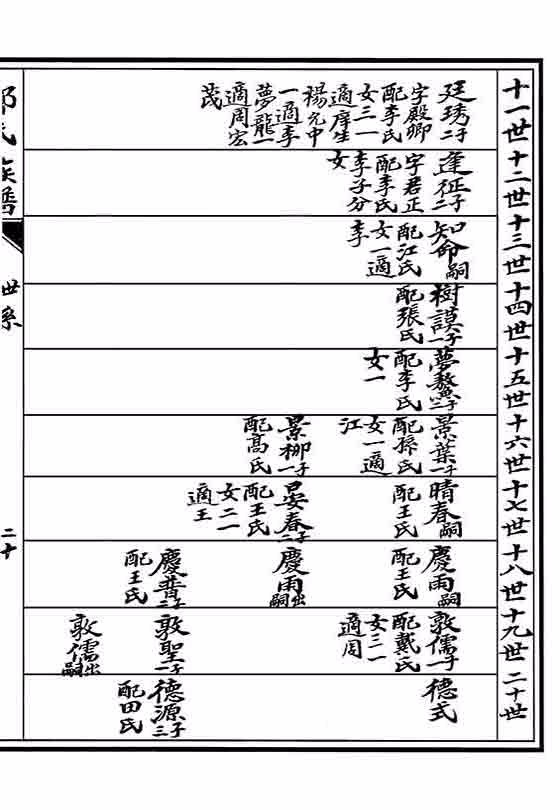 十一世
廷琇二子
字殿卿
配李氏
女三一
適庠生
楊允中
一適李
夢龍一
適周宏
茂
十二世
逢征二子
字君正
配李氏
李子分
女
十三世
知命嗣
配江氏
女一適
李
十四世
樹謨一子
配張氏
十五世
夢鰲二子
配李氏
女一
十六世
景葉一子
配孫氏
女一適
江
景柳一子
配高氏
十七世
晴春嗣
配王氏
晏春二子
配王氏
女二一
適王
十八世
慶雨嗣
配王氏
慶雨出嗣
慶普二子
配王氏
十九世
敦儒一子
配戴氏
女三一
適周
敦聖一子
敦儒出嗣
二十世
德式
德源三子
配田氏
氏族譜
世系
二十